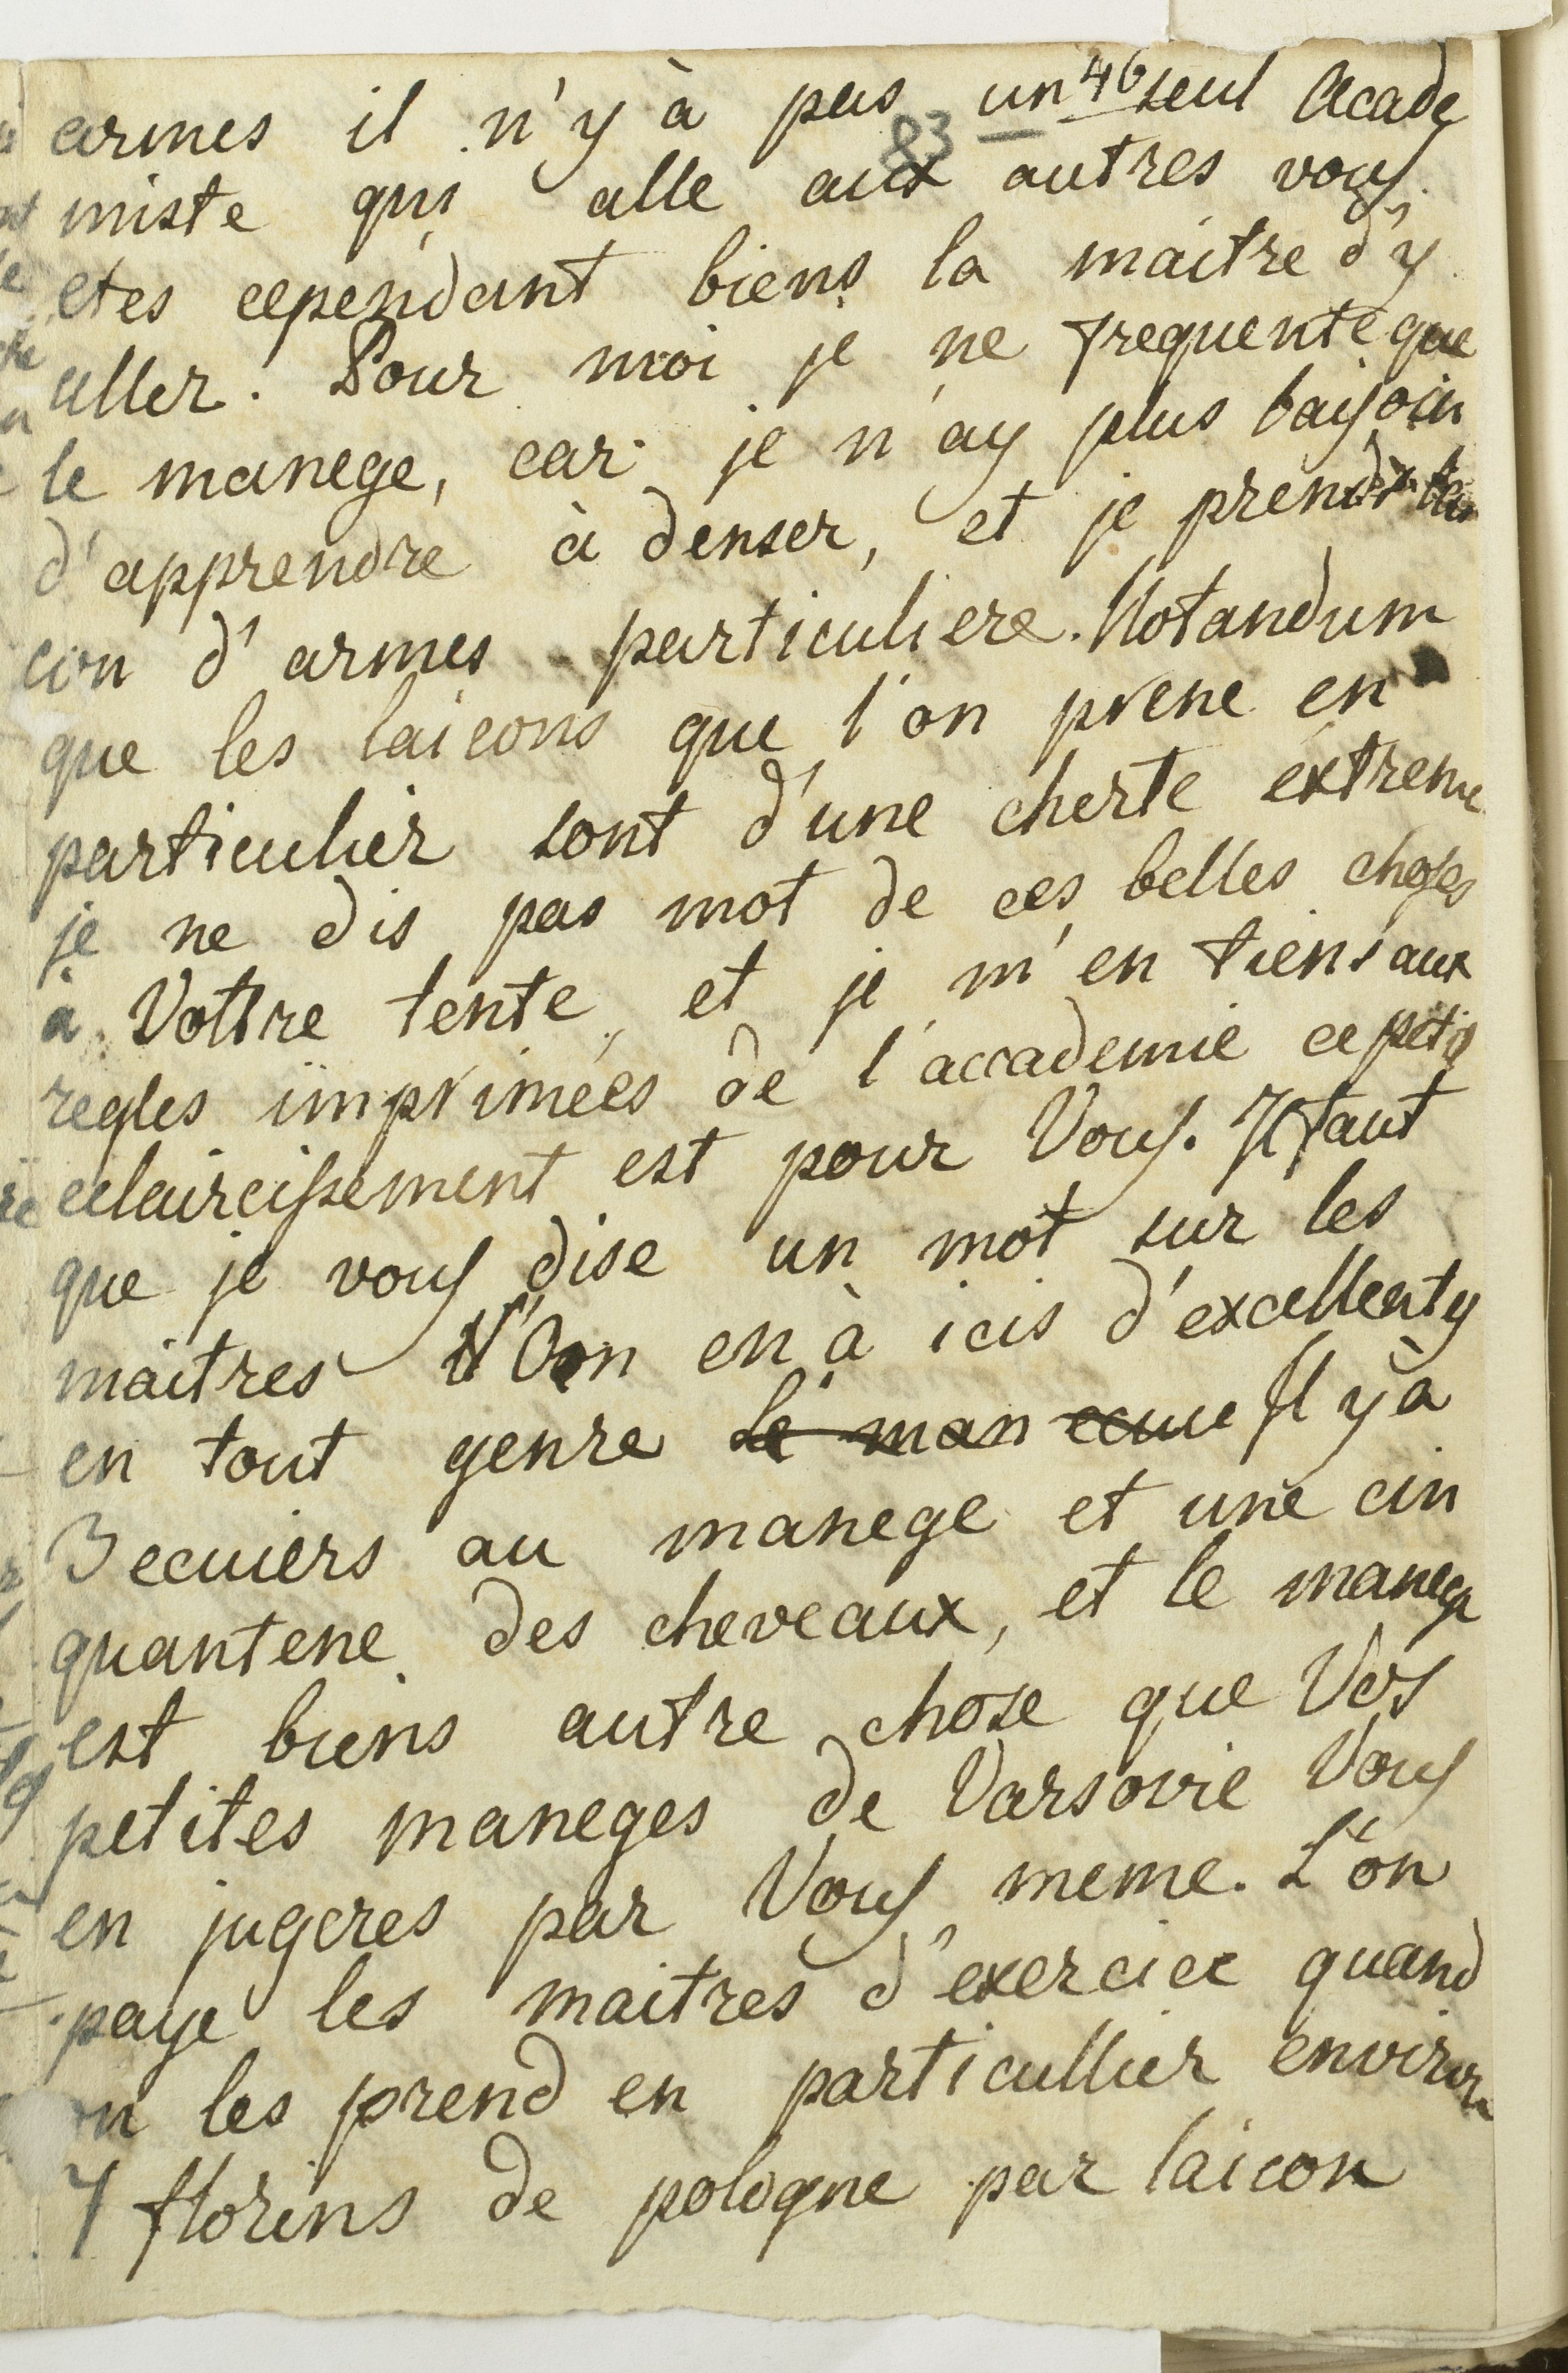 46
83
armes il n'y à pas un seul Acade
miste qui alle aux autres vous
etes cependant biens la maitre d'y
aller. Pour moi je ne frequente que
le manege, car je n'ay plus baisoin
d'apprendre à denser, et je prend
con d'armes particuliere. Notandum
que les laicons que l'on prene en
particulier sont d'une cherte éxtreme
je ne dis pas mot de ces belles choses
à Vottre tente, et je m'en tiens aux
regles imprimées de l'accademie ce petit
eclaircissement est pour Vous. Il faut
que je vous dise un mot sur les
maitres l'on en à icis d'excellents
en tout genre le man ecuie Il y à
3 ecuiers au manege et une cin
quantene des cheveaux, et le manege
est biens autre chose que Vos
petites maneges de Varsovie Vous
en jugeres par Vous meme. L'on
paye les maitres d'exercice quand
on les prend en particullier environ
7 florins de pologne par laicon